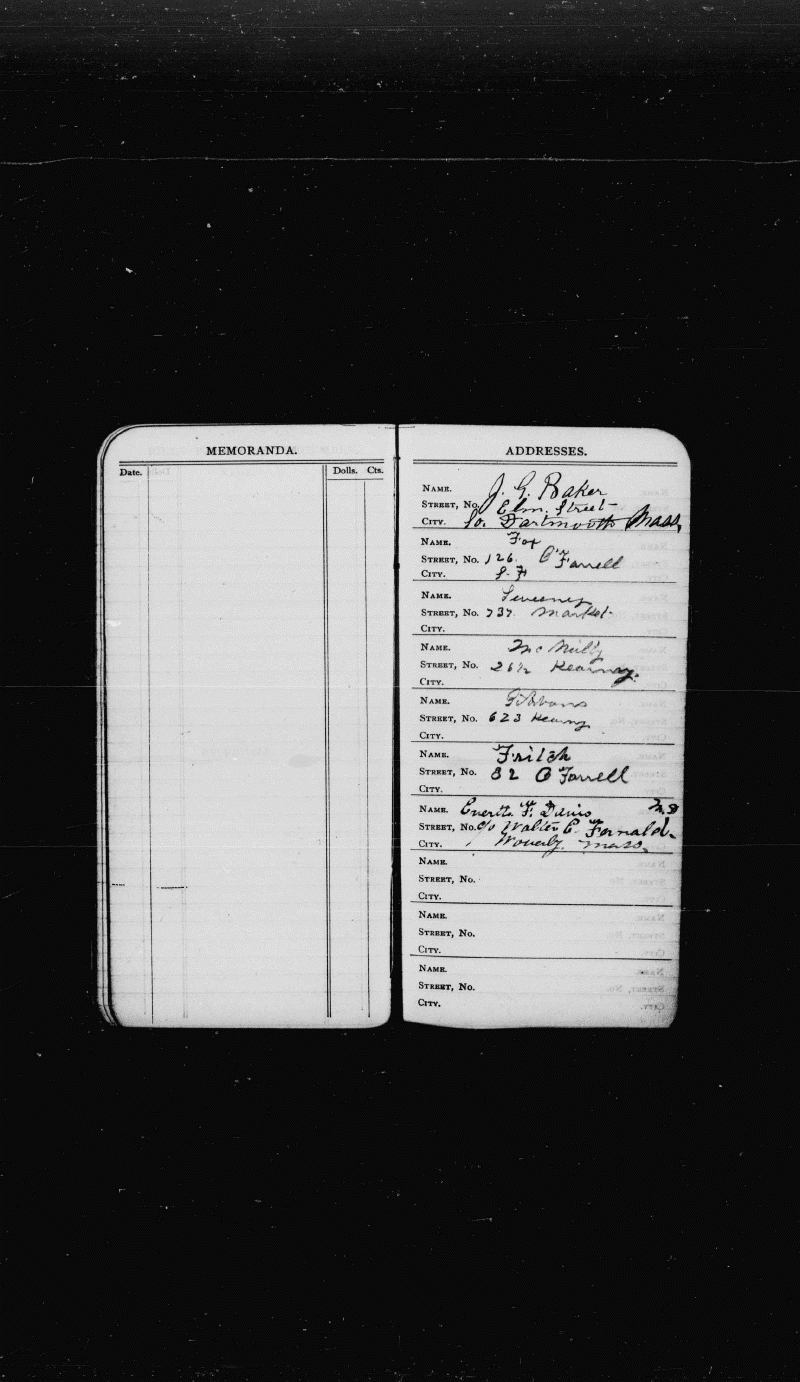 MEMORANDA.
Date. Dolls. Cts.
ADDRESSES.
NAME. J. G. Baker
STREET, No. Elm. Street
CITY. So. Dartmouth Mass,
NAME. Fox
STREET, No. 126. O'Farrell
CITY. S. F
NAME. Sweeney
STREET, No. 737. Market
CITY.
NAME.
STREET, No. Kearny.
CITY.
NAME.
STREET, No. 623 Kearny
CITY.
NAME. Fritch
STREET, No. 32 O Farrell
CITY.
NAME. F. Davis
STREET, No. c/o Walter E. Fernald.
CITY. Waverly. Mass.
NAME.
STREET, No.
CITY.
NAME.
STREET, No.
CITY.
NAME.
STREET, No.
CITY.